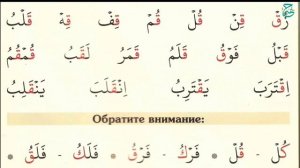 قِنْ قُلْ قُمْ قِفْ قِهْ قَلْبُ
قَبْلُ فَوْقُ قَلَمُ قَمَرُ لَقَبُ قُمْقُمُ
اِقْتَرَبَ يَقْتَرِبُ اِنْقَلَبَ يَنْقَلِبُ
Обратите внимание:
كُلْ - قُلْ • فَرْكُ - فَرْقُ • فَلَكُ - فَلَقُ •